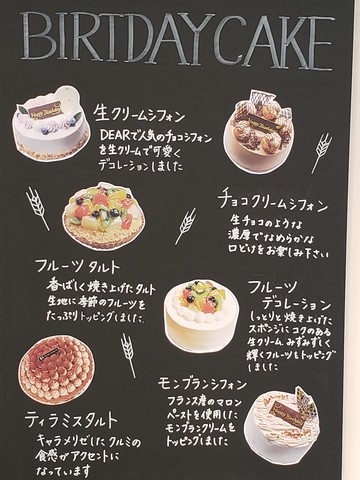 BIRTDAY CAKE
生クリームシフォン
DEARで人気のチョコシフォン
を生クリームで可愛く
デコレーションしました
チョコクリームシフォン
生チョコのような
濃厚でなめらかな
口どけをお楽しみ下さい
フルーツタルト
香ばしく焼き上げたタルト
生地に季節のフルーツを
たっぷりトッピングしました
フルーツ
デコレーション
しっとりと焼き上げた
スポンジにコクのある
生クリーム、みずみずしく
輝くフルーツをトッピング
しました
モンブランシフォン
フランス産のマロン
ペーストを使用した
モンブランクリームを
トッピングしました
ティラミスタルト
キャラメリゼしたクルミの
食感がアクセントに
なっています